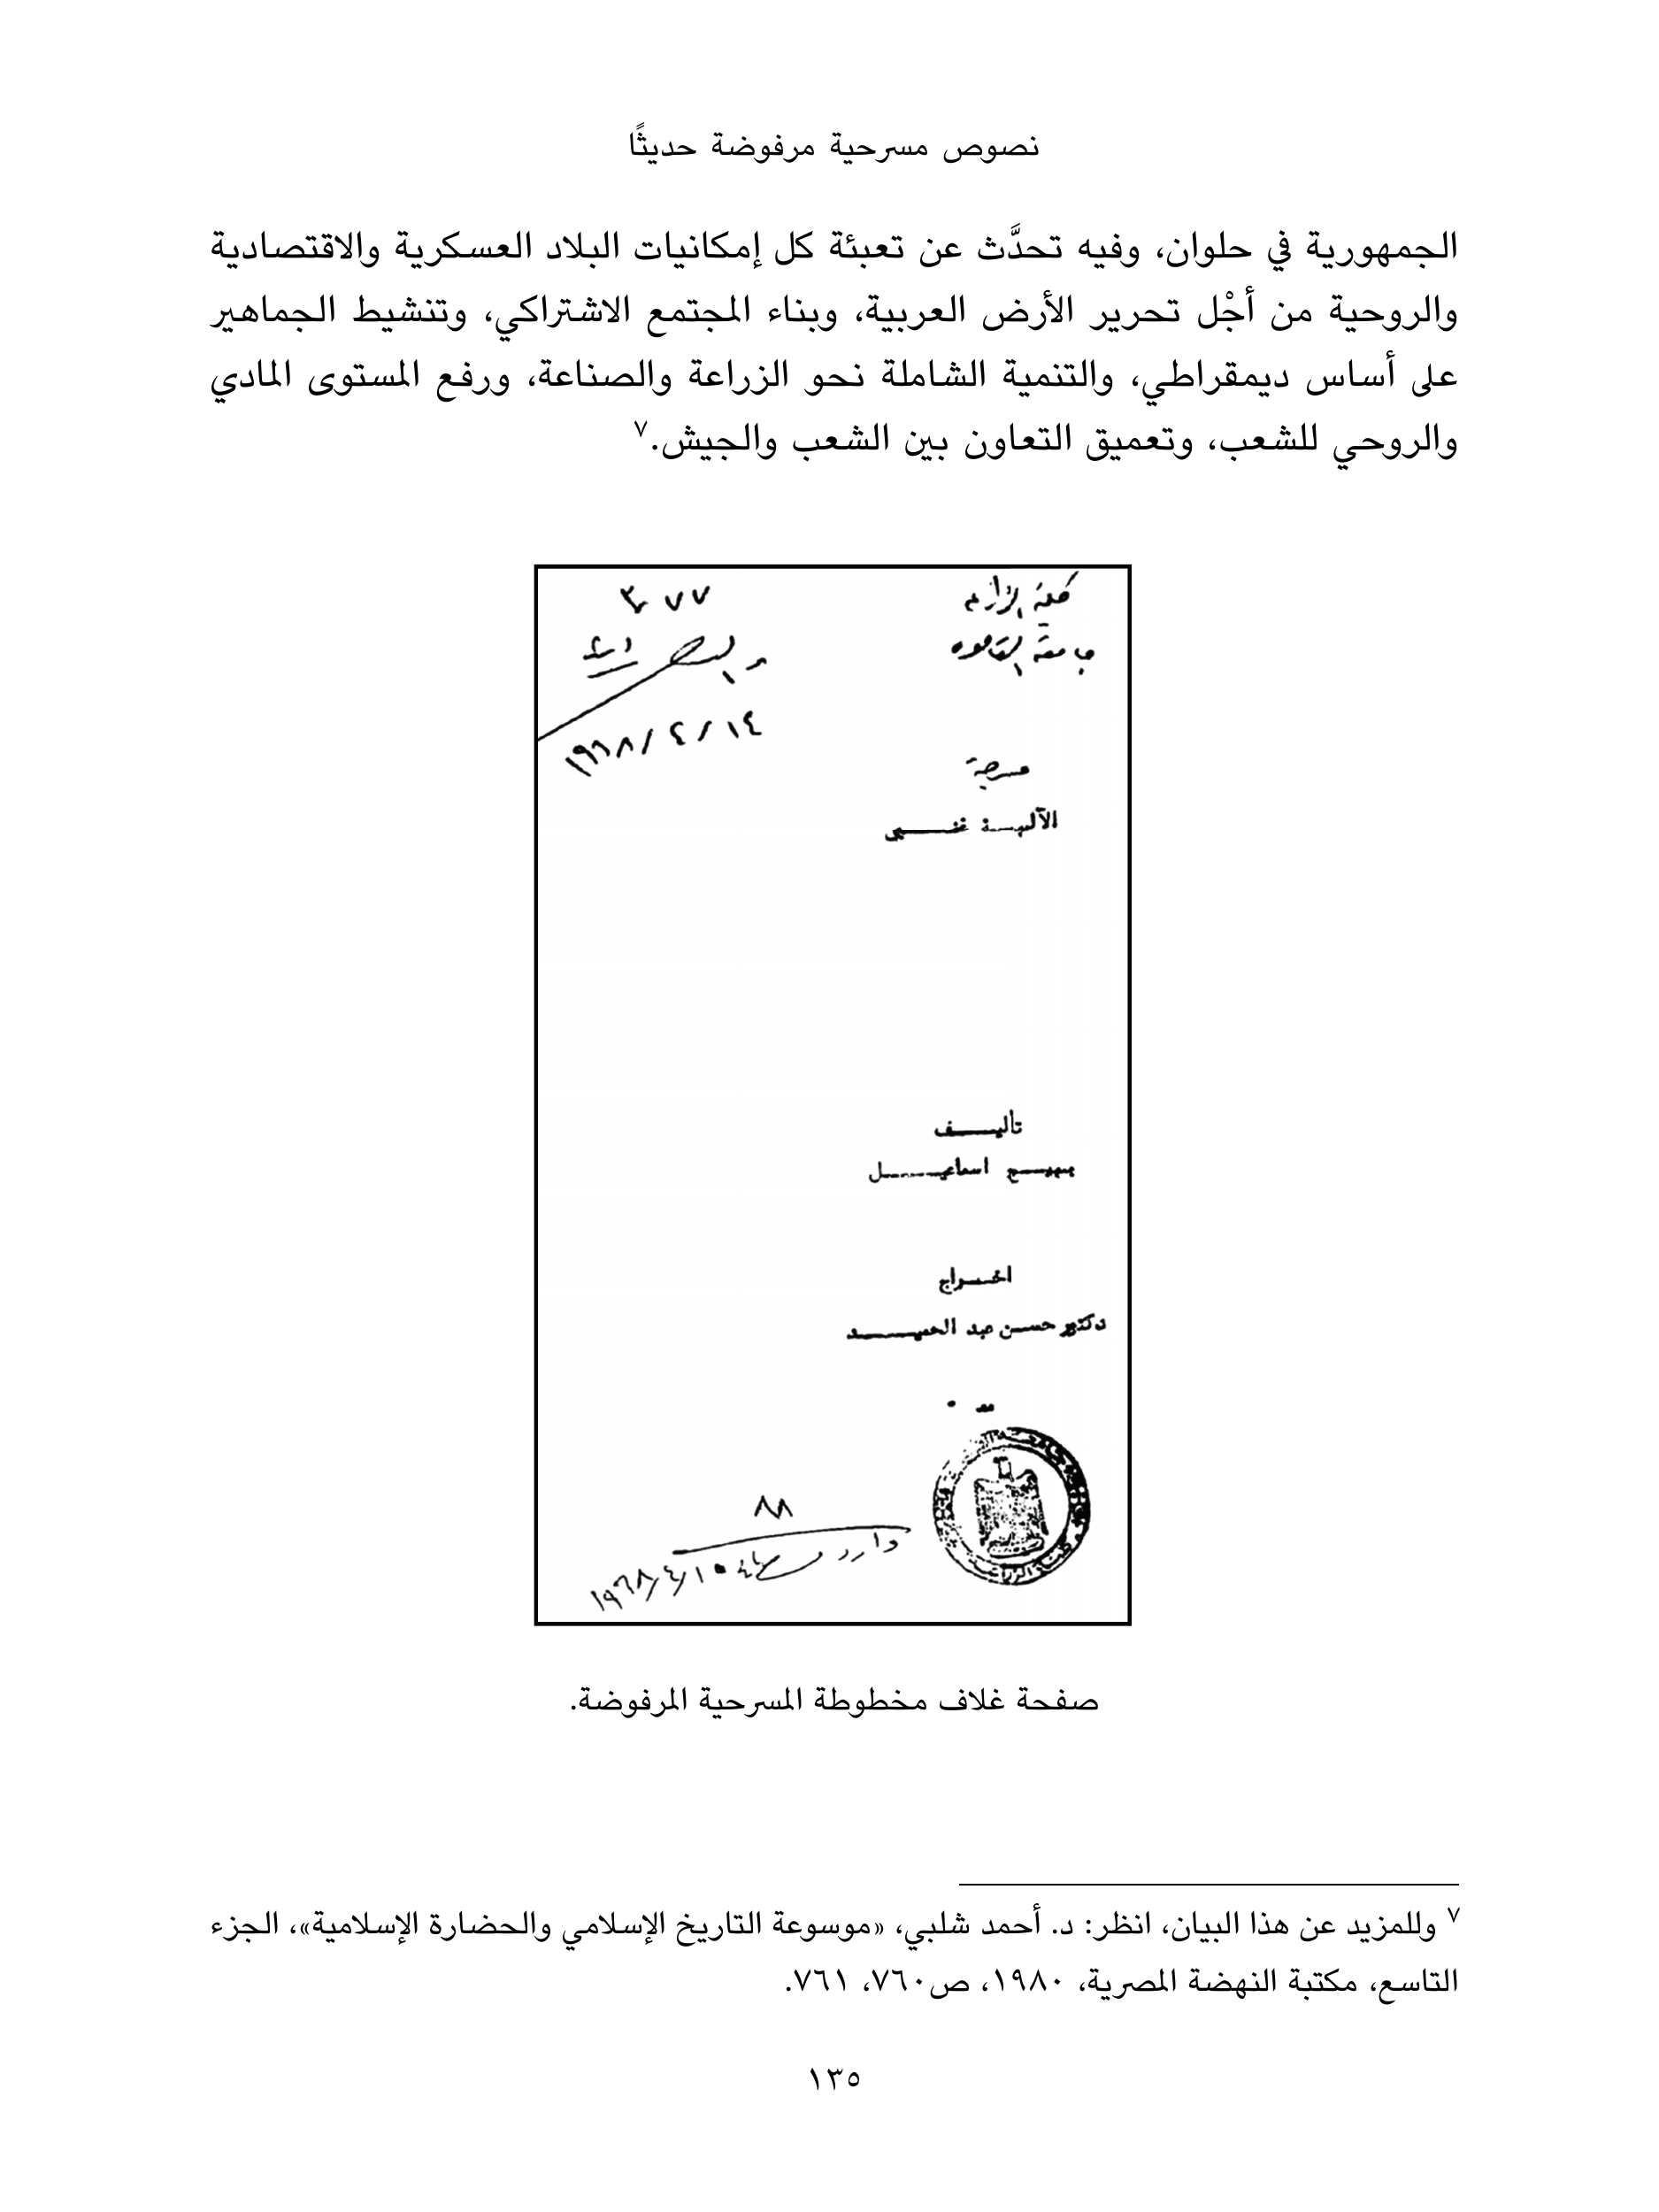 نصوص مسرحية مرفوضة حديثًا
الجمهورية في حلوان، وفيه تحدَّث عن تعبئة كل إمكانيات البلاد العسكرية والاقتصادية
والروحية من أجْل تحرير الأرض العربية، وبناء المجتمع الاشتراكي، وتنشيط الجماهير
على أساس ديمقراطي، والتنمية الشاملة نحو الزراعة والصناعة، ورفع المستوى المادي
والروحي للشعب، وتعميق التعاون بين الشعب والجيش.٧
٣٧٧
جامعة القاهرة
١٩٦٨/٢/١٤
مسرحية
الآلهة غضبى
تأليف
بهيج اسماعيل
اخراج
دكتور حسن عبد الحميد
٨٨
وارد
١٩٦٨/٤/١٥
صفحة غلاف مخطوطة المسرحية المرفوضة.
٧ وللمزيد عن هذا البيان، انظر: د. أحمد شلبي، «موسوعة التاريخ الإسلامي والحضارة الإسلامية»، الجزء
التاسع، مكتبة النهضة المصرية، ١٩٨٠، ص٧٦٠، ٧٦١.
١٣٥